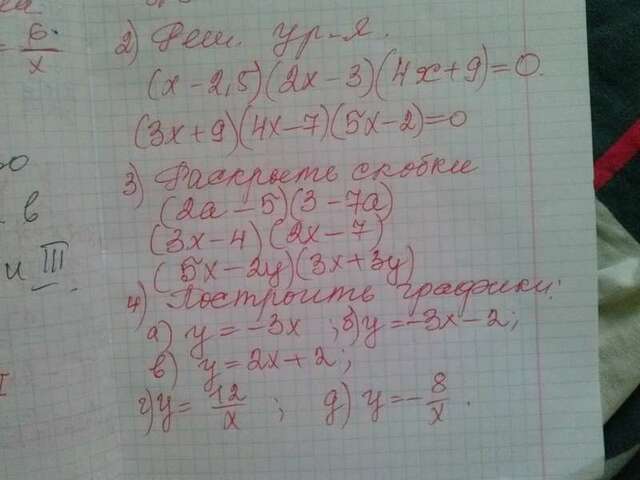 = 6/x
2) Реш. ур-я.
(x - 2,5)(2x - 3)(4x + 9) = 0.
(3x + 9)(4x - 7)(5x - 2) = 0
3) Раскрыть скобки
в
(2a - 5)(3 - 7a)
(3x - 4)(2x - 7)
и III
(5x - 2y)(3x + 3y)
4) Построить графики:
а) y = -3x ; б) y = -3x - 2;
в) y = 2x + 2;
г) y = 12/x ; д) y = - 8/x .